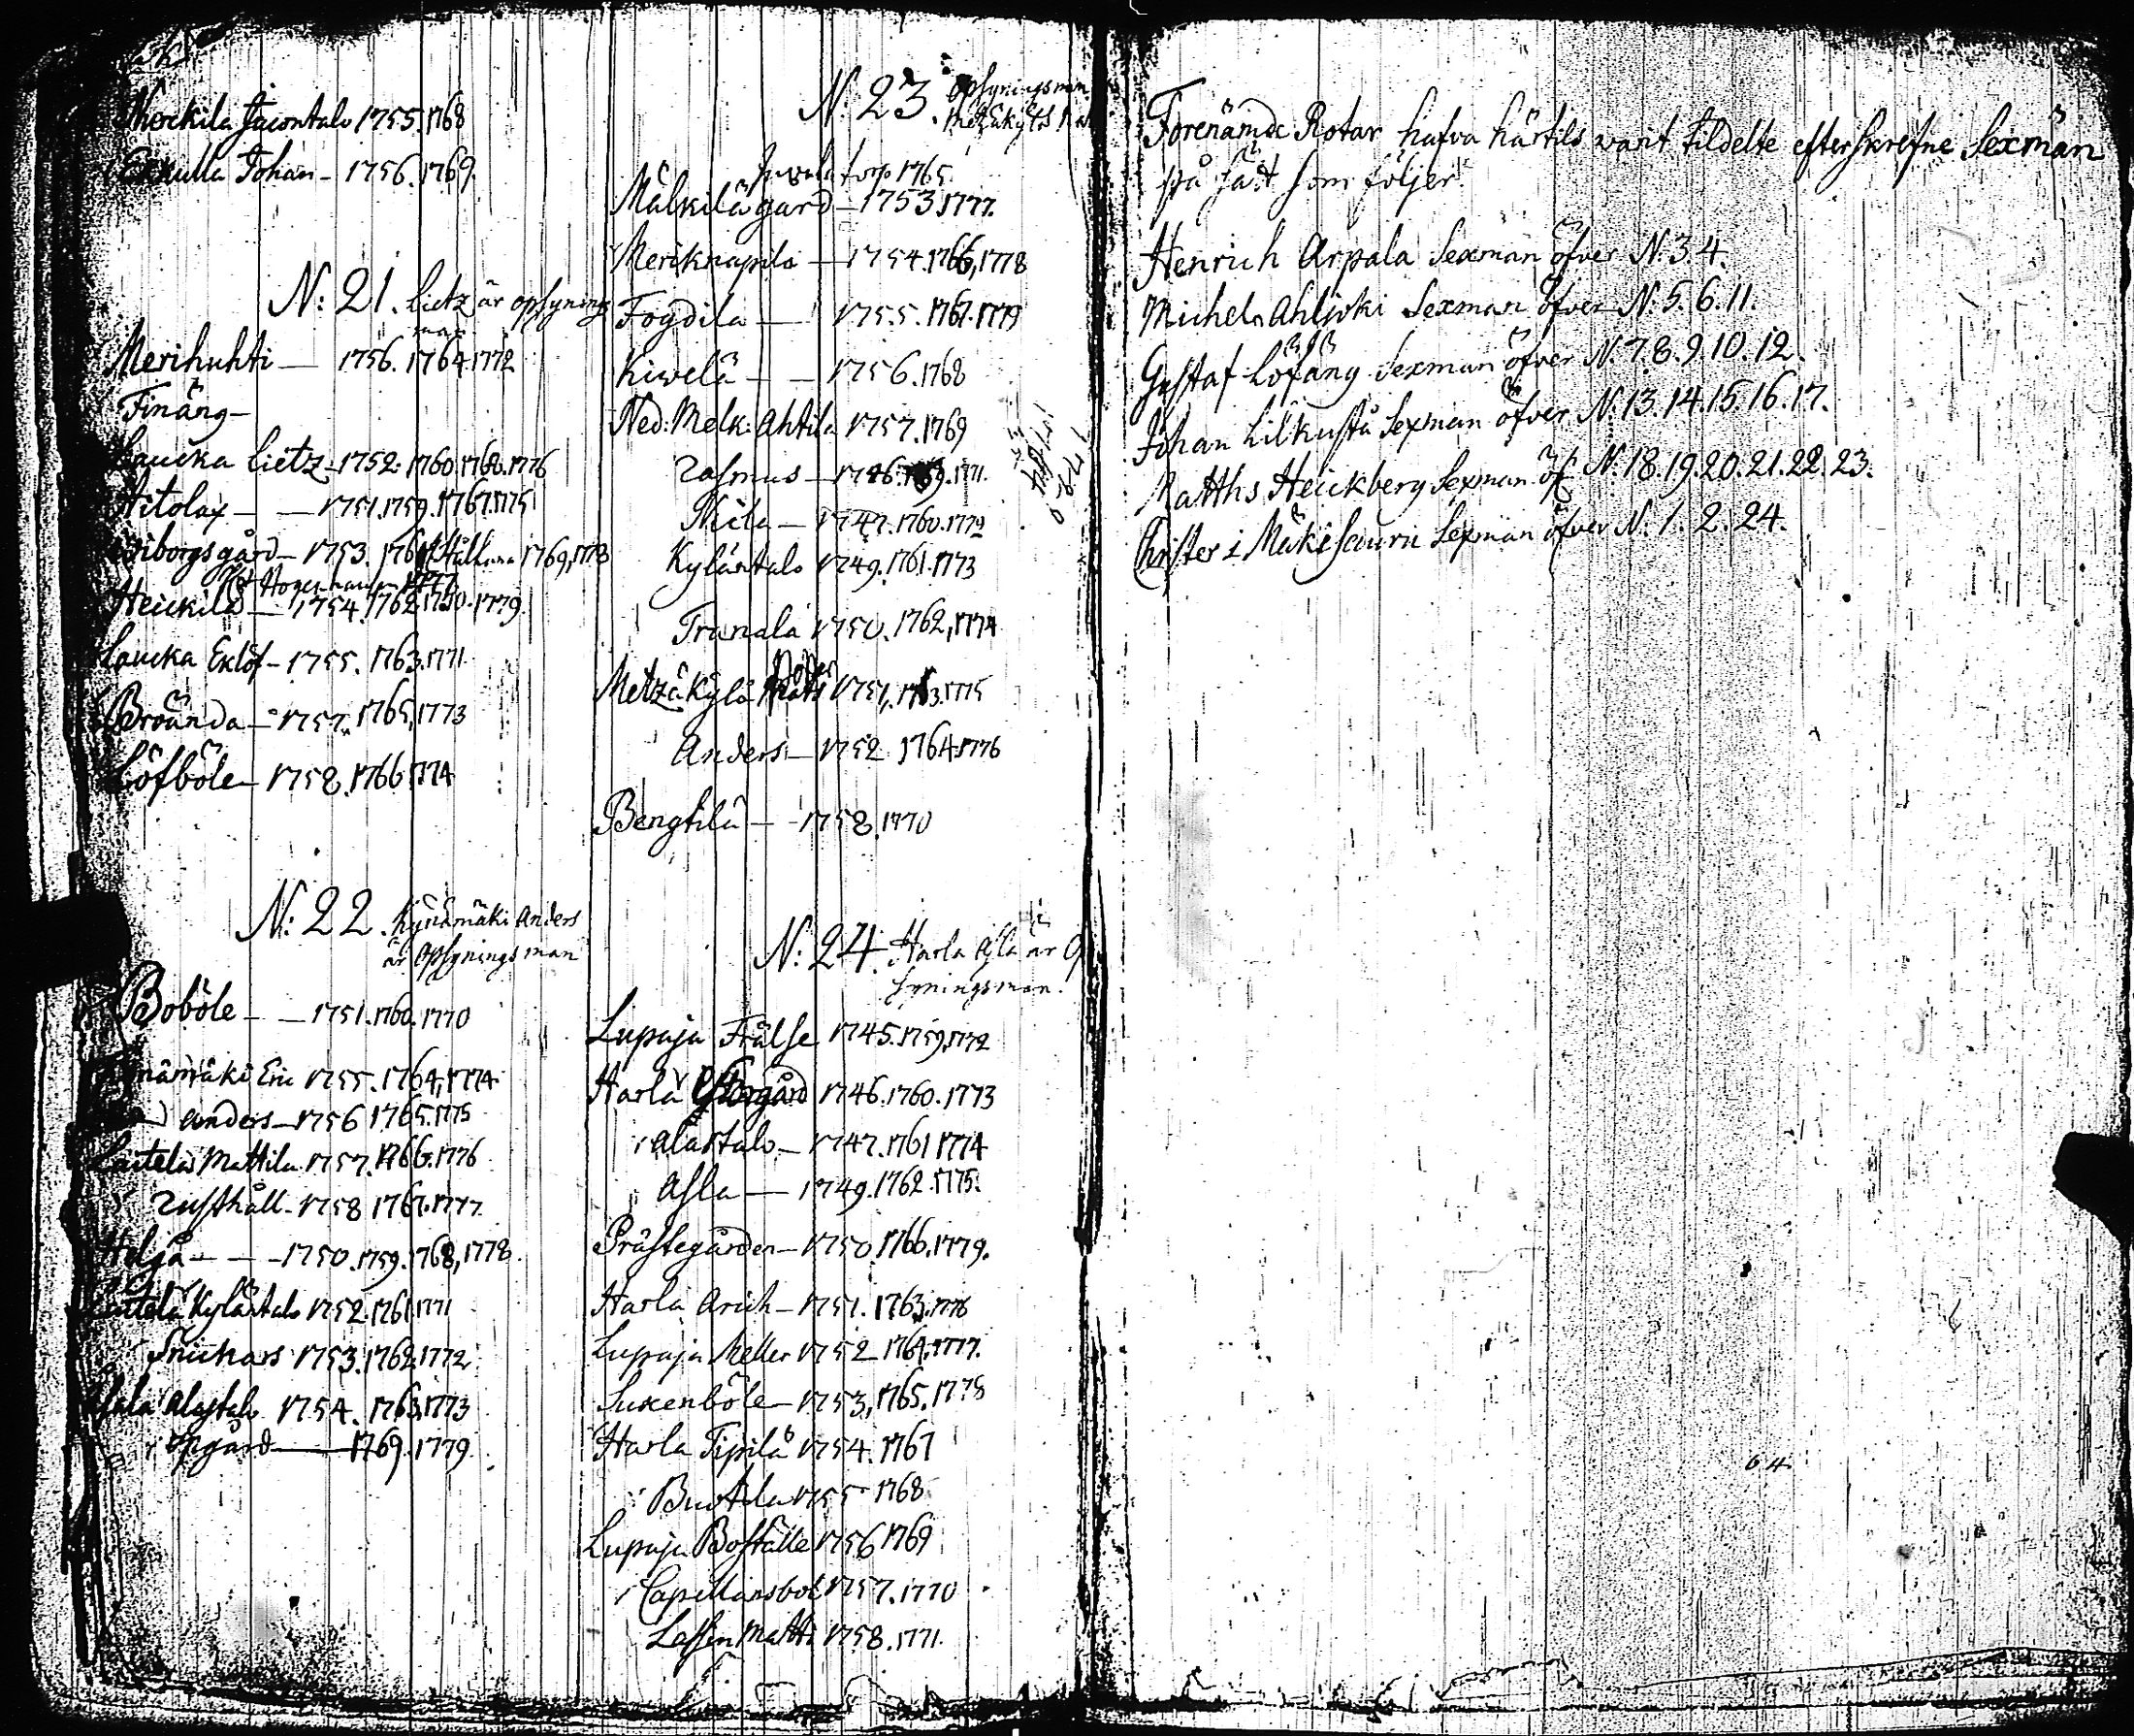 Merkila Jacontalo 1755.1768
Exnulla Johan - 1756.1769.
N: 21. Lietz är opsynings
man
Merihuhti — 1756. 1764.1772
Finäng -
Laucka Lietz - 1752. 1760.1768.1776
Aitolax - - 1751.1759.1767.1775
Wiborgsgård - 1753. 1769,1778
Heickilä - 1754.1762.1770.1779.
Laucka Eklöf - 1755. 1763.1771
Broända - 1757. 1765,1773
Löfböle - 1758.1766.1774
N: 22. Kynämäki Anders
är Opsyningsman
Boböle - - 1751.1760.1770
Kynämäki Eric 1755.1764,1774
Anders - 1756 1765.1775
Laitela Mattila 1757.1766.1776
Rusthåll - 1758 1767.1777.
Heljä - - - 1750.1759.1768,1778.
Laitela Kyläntalo 1752.1761.1771
Snickars 1753.1762.1772
Alastalo 1754. 1763.1773
Opgård — 1769.1779.
N: 23. Opsyningsman
Metzäkylä
torp 1765
Mälkilä gård - 1753.1777.
Meriknapila - 1754.1766,1778
Fogdila - 1755.1767.1779
Kiwelä - - 1756.1768
Ned: Melk: Ahtila 1757.1769
Rasmus - 1746.1759.1771.
Skila - 1747.1760.1772
Kyläntalo 1749.1761.1773
Tranala 1750.1762,1774
Metzäkylä Matts 1751,1763.1775
Anders - 1752 1764.1776
Bengtilä - - 1758.1770
1780
N: 24. Harla Asla är Op
syningsman.
Lupaja Frälse 1745.1759,1772
Harla Storgård 1746.1760.1773
Alastalo - 1747.1761 1774
Asla — 1749.1762.1775.
Prästegården - 1750.1766.1779.
Harla Arich - 1751.1763.1776
Lupaja Meller 1752 1764.1777.
Suxenböle - 1753,1765.1778
Harla Tipilä 1754.1767
Bustila 1755 1768
Lupaja Boställe 1756 1769
Capellansbol 1757.1770
Lassen Matts 1758.1771.
Förenämde Rotar hafva härtils warit tildelte efterskrefne Sexmän
på sätt som följer.
Henrich Arpala Sexman öfver N. 3.4.
Michel Ahljoki Sexman öfver N. 5.6.11.
Gustaf Löfäng Sexman öfver N. 7.8.9.10.12.
Johan Lilkustå Sexman öfver N. 13.14.15.16.17.
Matths Heickberg Sexman öf: N. 18.19.20.21.22.23.
Christer i Mäkisauru Sexman öfver N. 1.2.24.
64